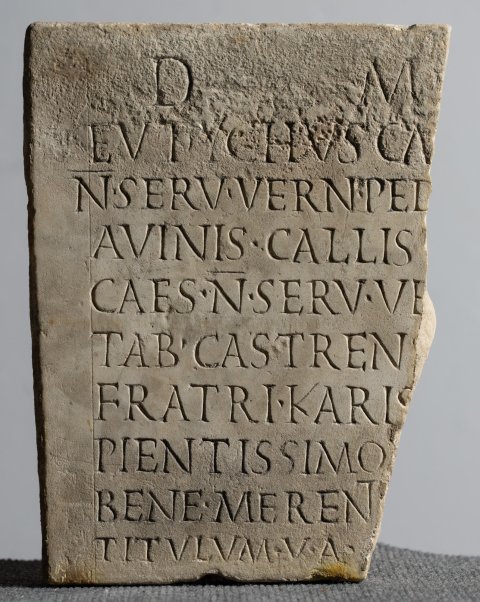 D M
EVTYCHVS CA
N̄·SERV·VERN·PED
AVINIS·CALLIS
CAES·N̄·SERV·VE
TAB·CASTREN
FRATRI·KARIS
PIENTISSIMO
BENE·MERENT
TITVLVM·V·A·